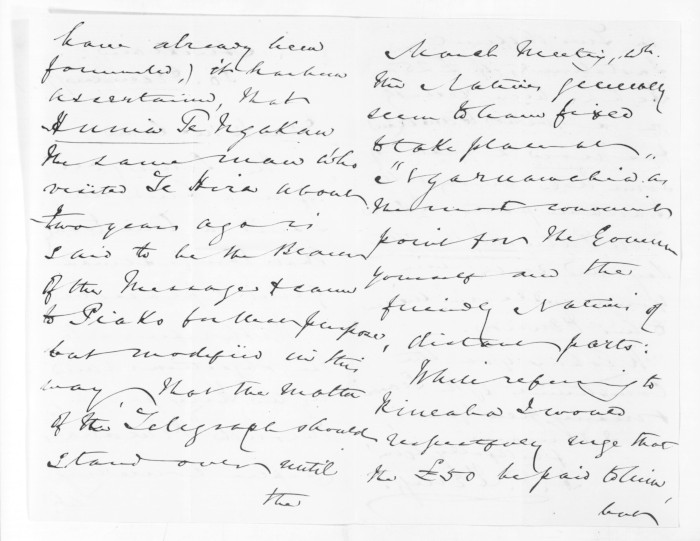 have already been
forwarded,) it has been
ascertained, that
Hunia Te Ngakau
the same man who
visited Te Hira about
two years ago is
said to be the Bearer
of the Message & came
to Piako for that purpose,
but modified in this
way That the matter
of the Telegraph should
stand over until
the
March Meeting, wh.
the Natives generally
seem to have fixed
to take place at
" as
the most convenient
point for the Governor
yourself and the
friendly Natives of
distant parts.
While referring to
I would
respectfully urge that
the £50 be paid to him,
but